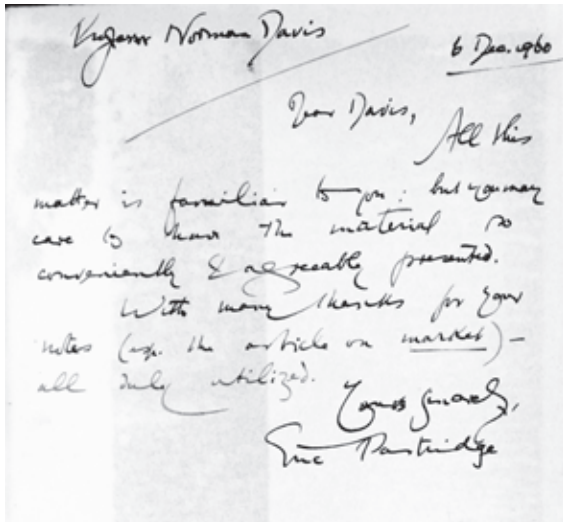 Professor Norman Davis
6 Dec. 1960
Dear Davis,
All this
matter is familiar to you : but you may
care to have the material so
conveniently & agreeably presented.
With many thanks for your
notes (esp. the article on market) –
all duly utilized.
Yours sincerely,
Eric Partridge